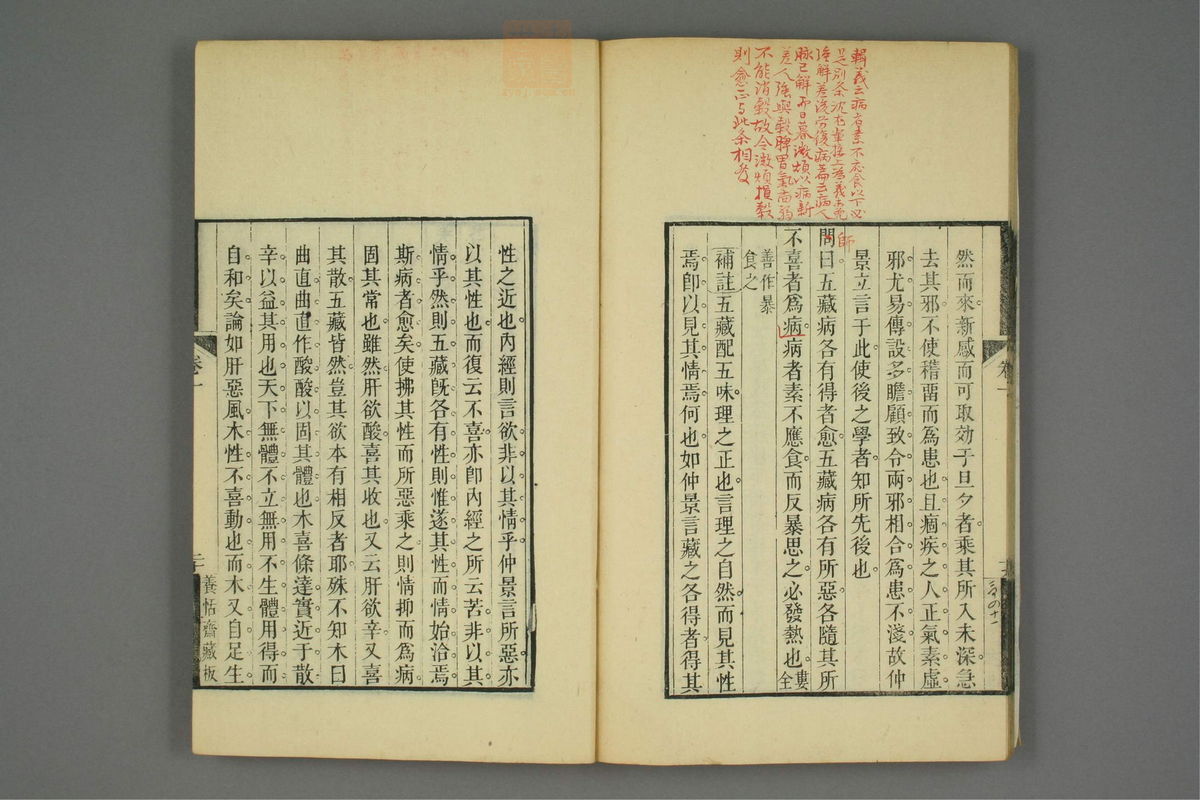 輯義云病者素不應食以下必
是別条沈在宥接上為義未免
脉已解而日暮微煩以病新
差人強與穀脾胃氣尚弱
不能消穀故令微煩損穀
則愈正与此条相發
師
然而來新感而可取効于旦夕者乘其所入未深急
去其邪不使稽留而爲患也且痼疾之人正氣素虛
邪尤易傳設多瞻顧致令兩邪相合爲患不淺故仲
景立言于此使後之學者知所先後也
問曰五藏病各有得者愈五藏病各有所惡各隨其所
不喜者爲病病者素不應食而反暴思之必發熱也婁全
善作暴
食之
補註五藏配五味理之正也言理之自然而見其性
焉卽以見其情焉何也如仲景言藏之各得者得其
卷一
性之近也內經則言欲非以其情乎仲景言所惡亦
以其性也而復云不喜亦卽內經之所云苦非以其
情乎然則五藏旣各有性則惟遂其性而情始洽焉
斯病者愈矣使拂其性而所惡乘之則情抑而爲病
固其常也雖然肝欲酸喜其收也又云肝欲辛又喜
其散五藏皆然豈其欲本有相反者耶殊不知木曰
曲直曲直作酸酸以固其體也木喜條達實近于散
辛以益其用也天下無體不立無用不生體用得而
自和矣論如肝惡風木性不喜動也而木又自足生
卷一
二十
養恬齋藏板